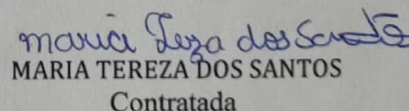 maria Tereza dos Santos
MARIA TEREZA DOS SANTOS
Contratada